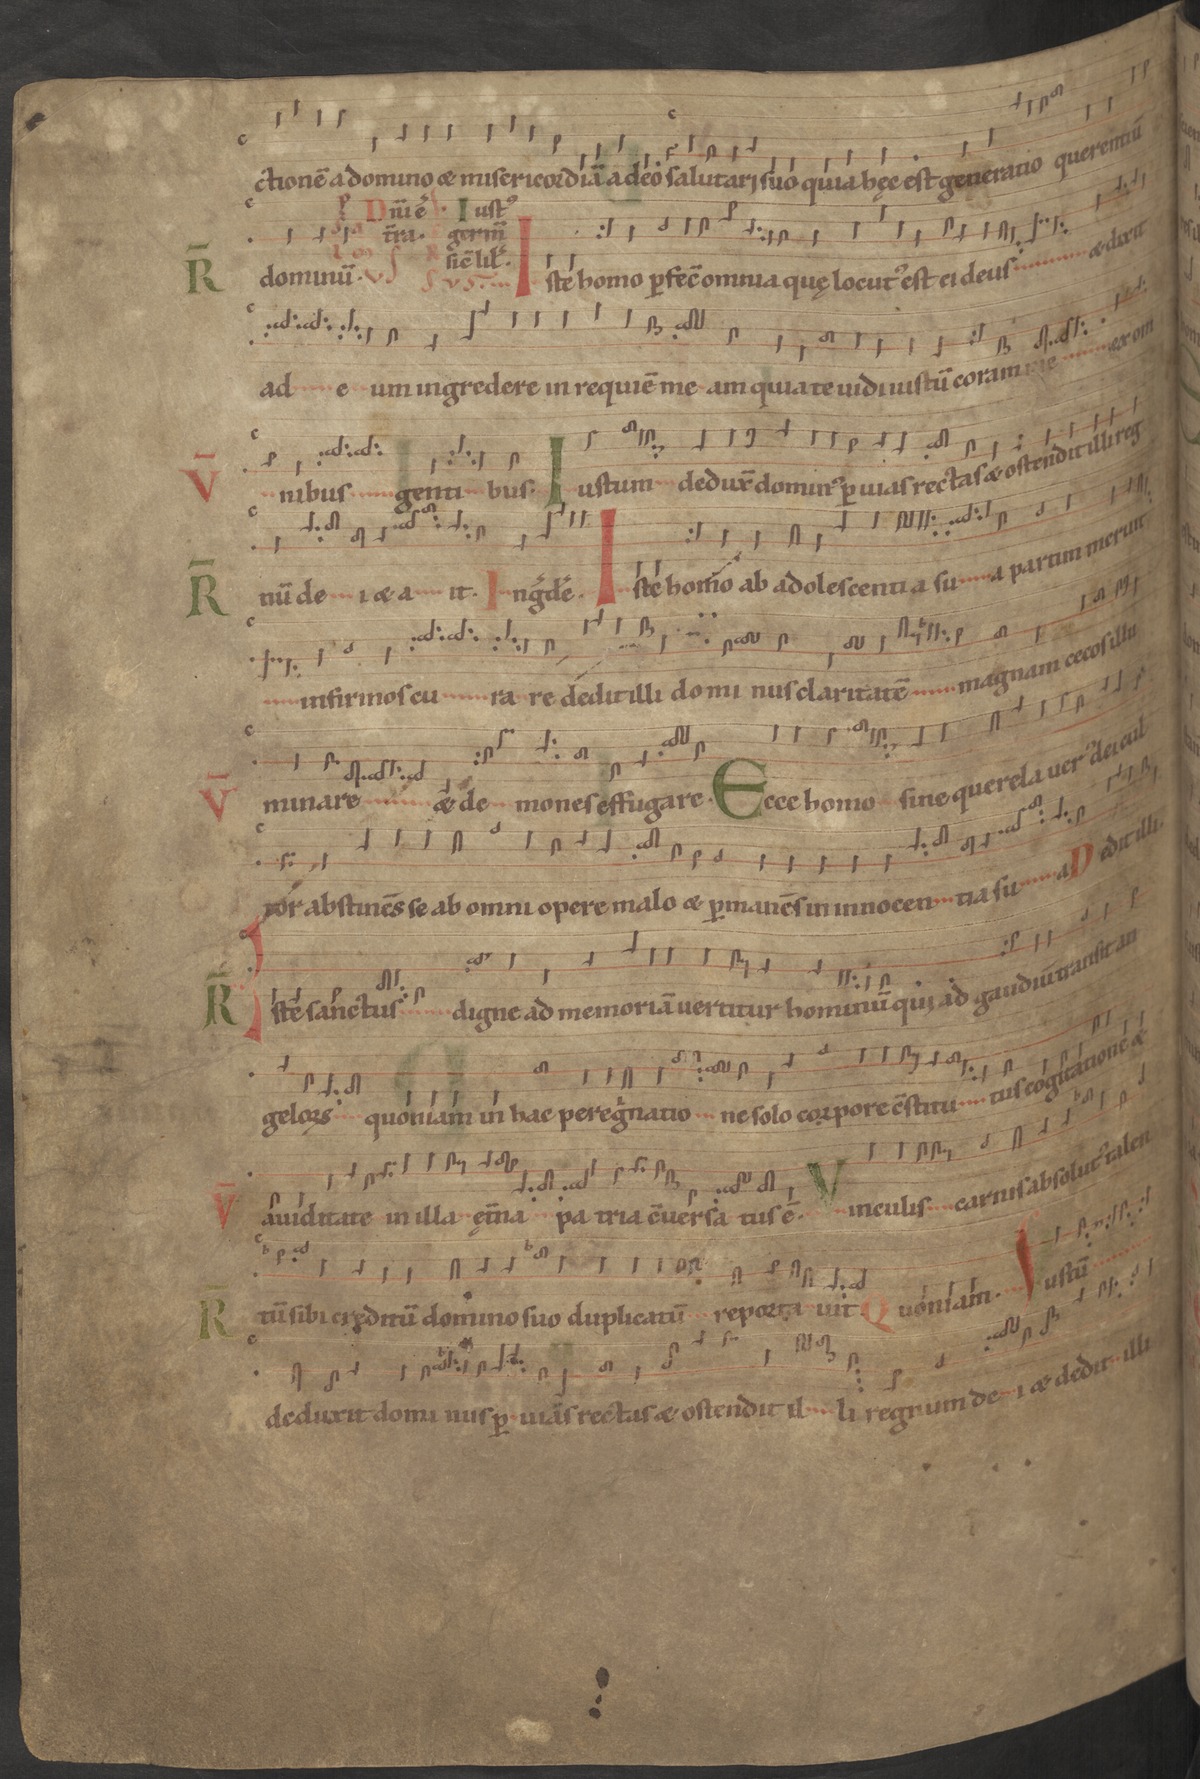 ctionē a domino & misericordiā a deo salutari suo quia hęc est generatio querentiū
Dn̄i ē Iustꝰ
t̄ra. germ̄
siē lil̄.
R̄ dominū. Iste homo ꝑfec̄ omnia quę locutꝰ est ei deus & dixit
ad e um ingredere in requiē me am quia te uidi iustū coram me ex om
V̄ nibus genti bus. Iustum dedux̄ dominꝰ ꝑ uias rectas & ostendit illi reg
R̄ nū de i & a it. Ingꝛ̄de. Iste homo ab adolescentia su a partim meruit
infirmos cu ra re dedit illi domi nus claritatē magnam cecos illu
V̄ minare & de mones effugare. Ecce homo sine querela uerꝰ dei cul
tor abstinēs se ab omni opere malo & ꝑmanēs in innocen tia su a Dedit illi.
R̄ Iste sanctus digne ad memoriā uertitur hominū qui ad gaudiū transit an
gelorꝝ quoniam in hac peregͥnatio ne solo corpore c̄stitu tus cogitatione &
V̄ auiditate in illa ęt̄na pa tria c̄uersa tus ē. Vinculis carnis absolutꝰ talen
R̄ tū sibi creditū domino suo duplicatū reporta uit. Quoniam. Iustū
deduxit domi nus ꝑ uias rectas & ostendit il li regnum de i & dedit illi